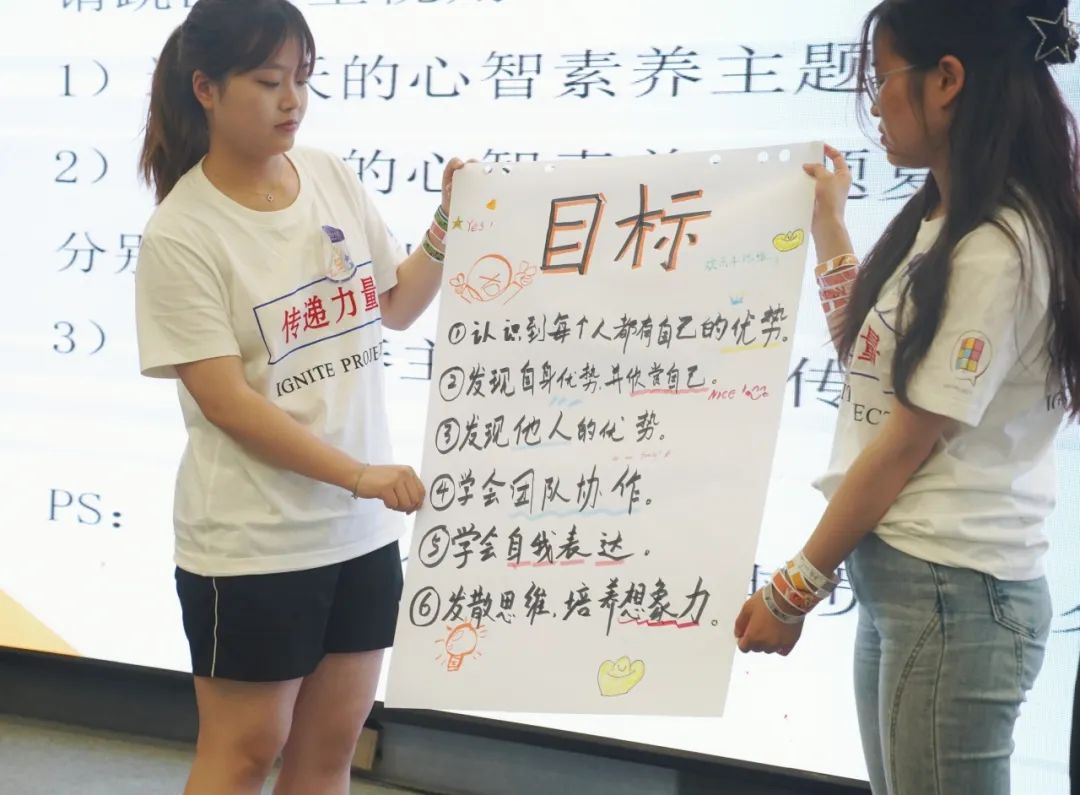 1）
天的心智素养主题
2）
的心智
题
分别
3）
主
传
PS：
传递力量
IGNITE PROJECT
ECT
IG
目标
Yes!
①认识到每个人都有自己的优势。
②发现自身优势并欣赏自己。
NICE!
③发现他人的优势。
④学会团队协作。
⑤学会自我表达。
⑥发散思维，培养想象力。